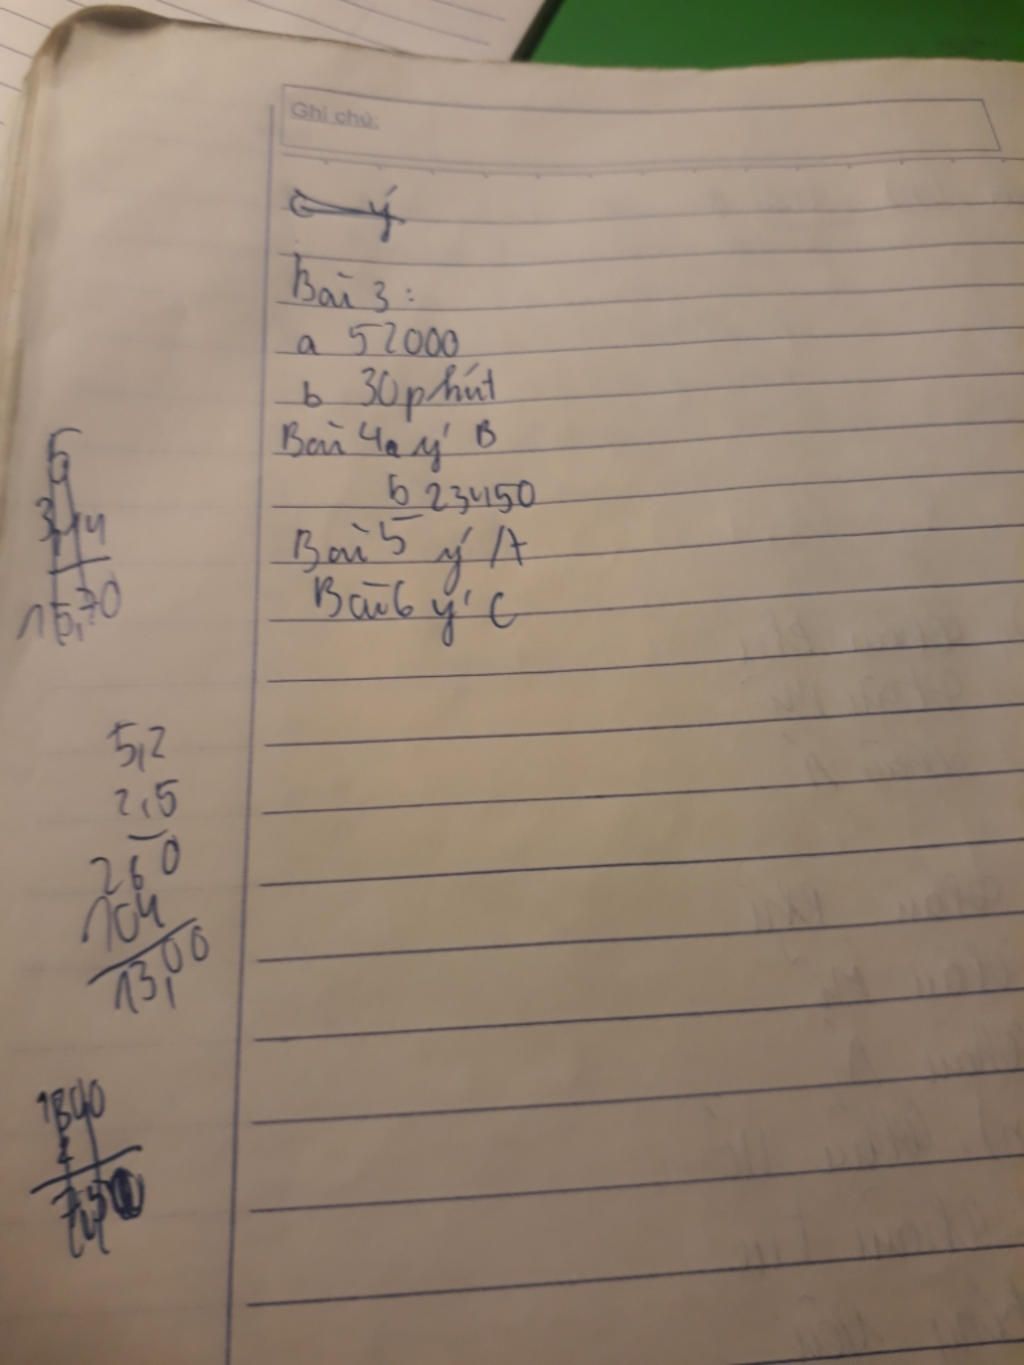 Ghi chú:
ý
Bài 3:
a 52000
b 30 phút
Bài 4a ý B
b 23450
Bài 5 ý A
Bài 6 ý C
5
3,14
15,70
5,2
2,5
260
104
13,00